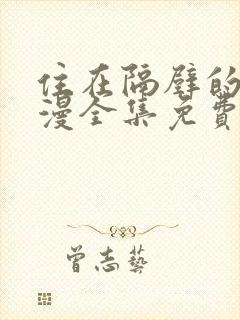 住在隔壁的
漫全集免費
曾志藝